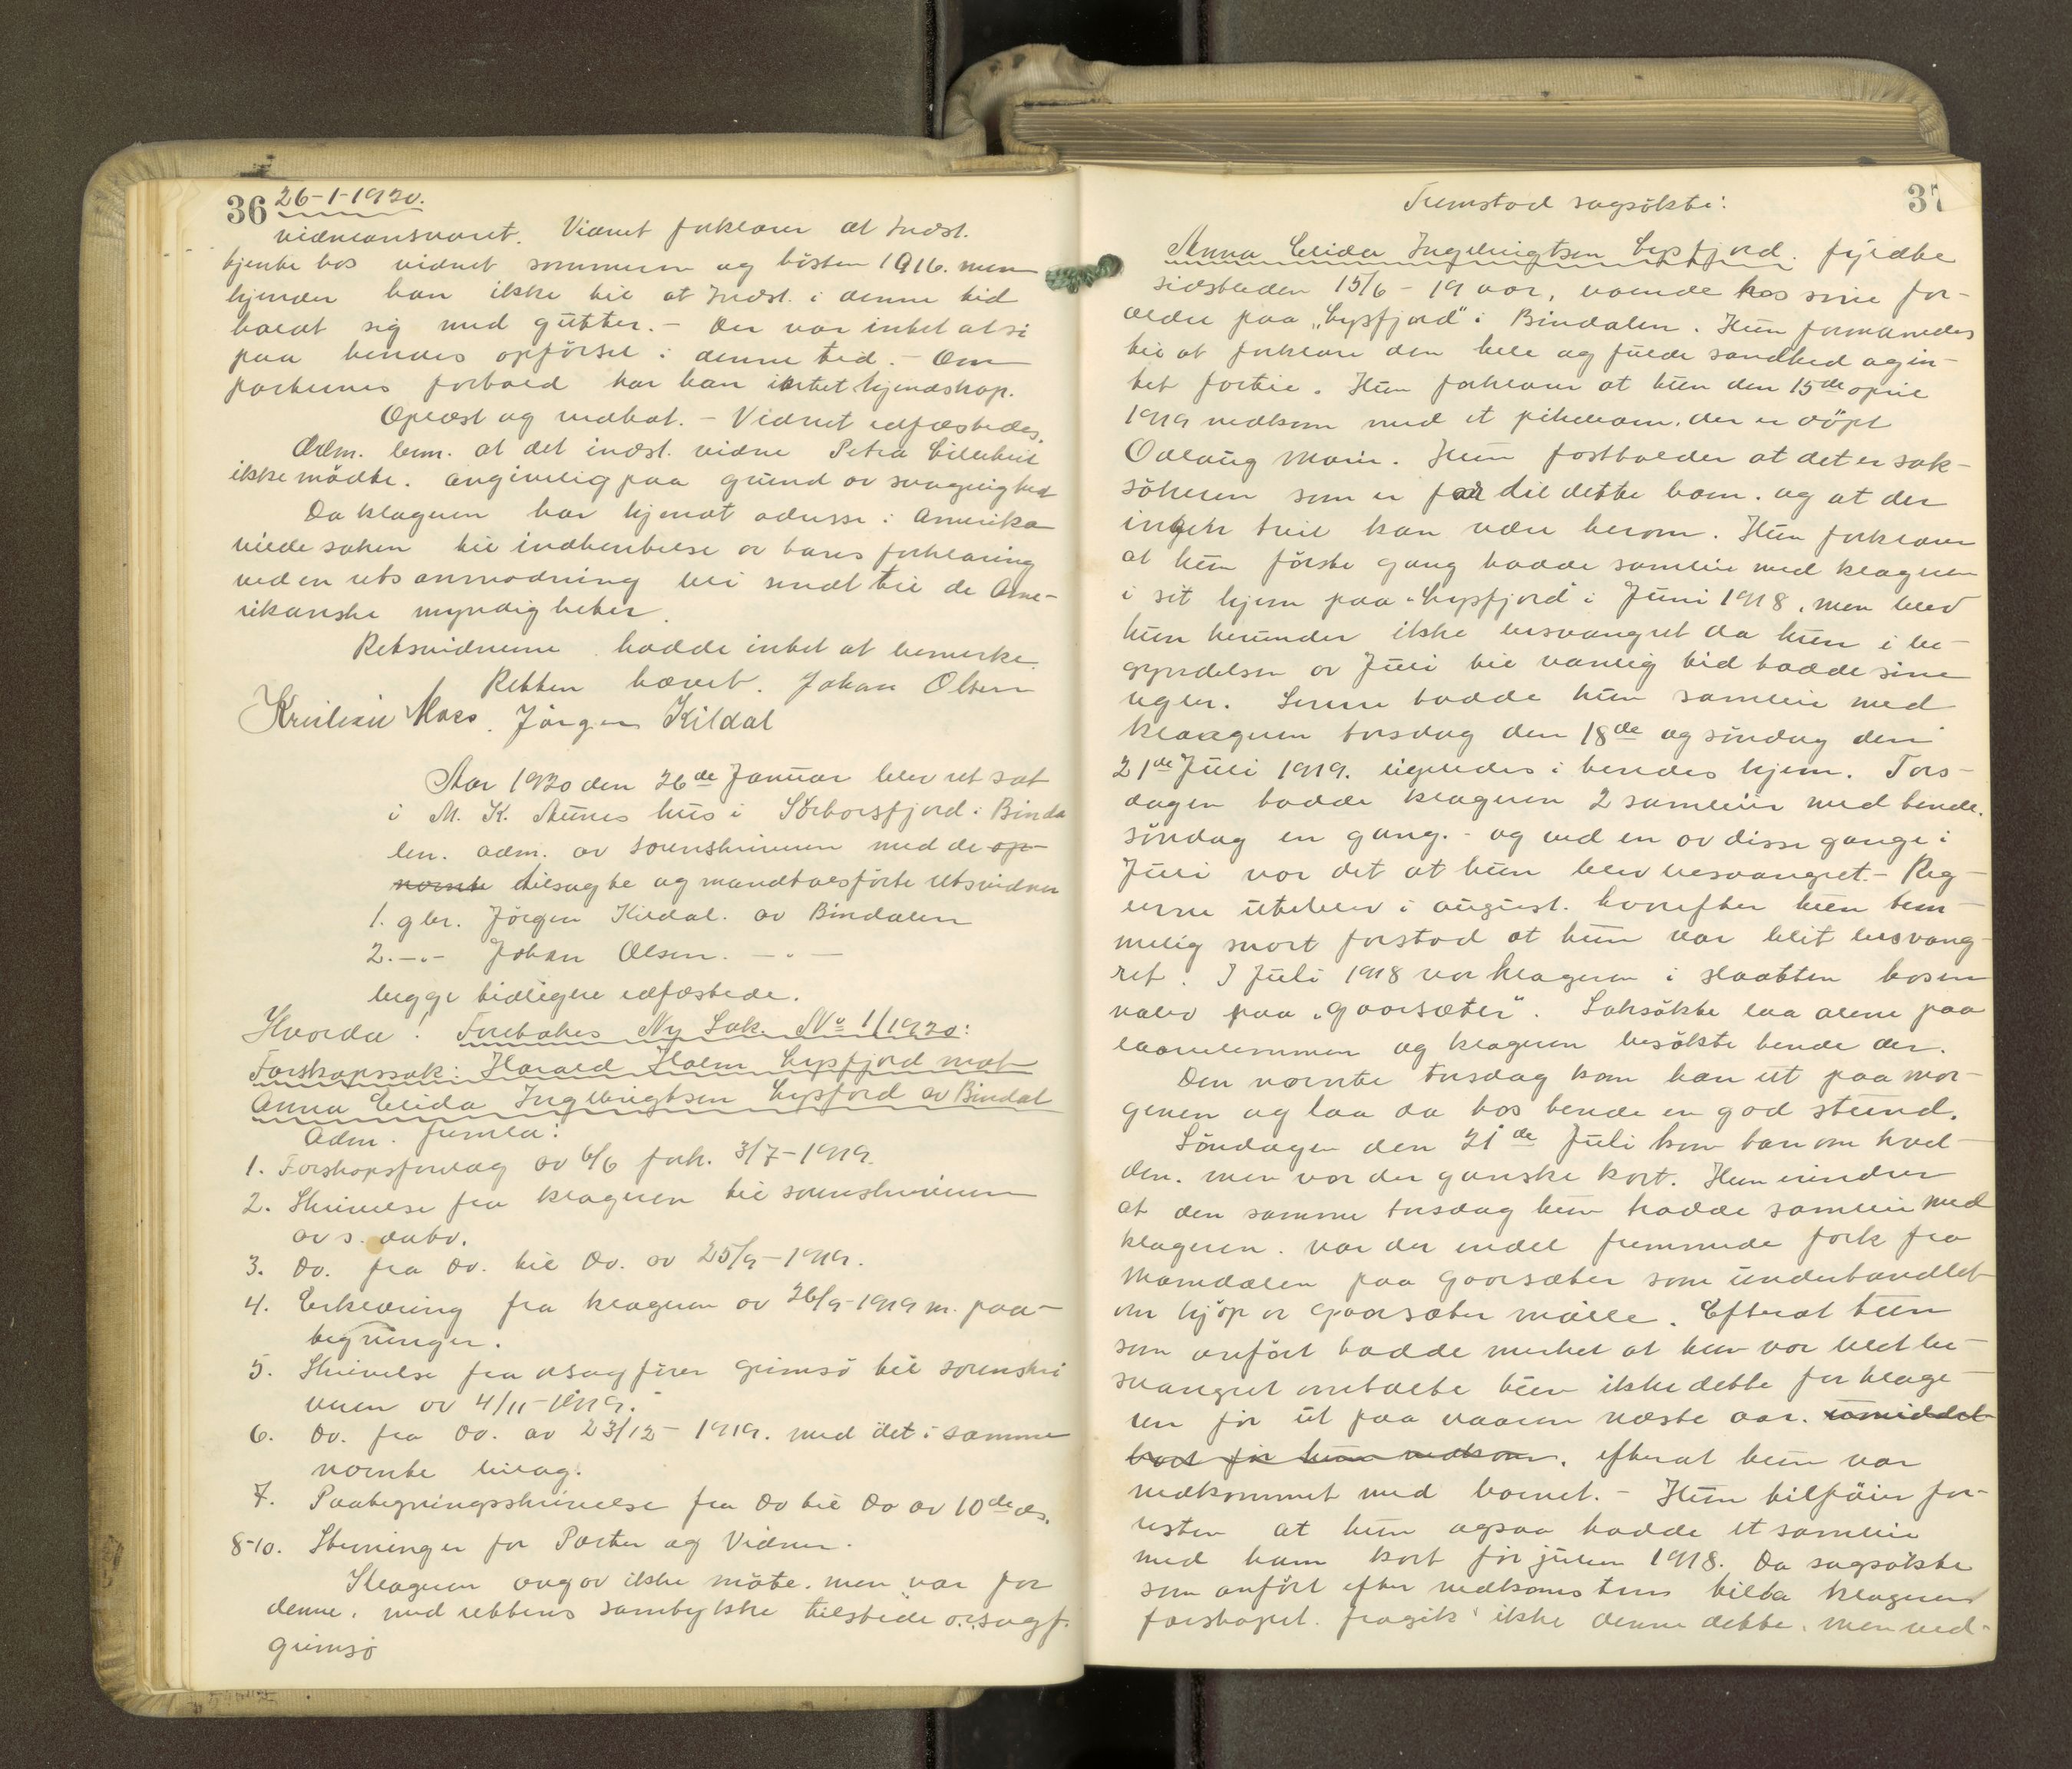 36 26-1-1920.
vidneansvaret. Vidnet forklarer at Indst.
tjente hos vidnet sommeren og høsten 1916. men
kjender han ikke til at Indst. i denne tid
holdt sig med gutter. - Der var intet at si
paa hendes opførsel i denne tid. - Om
parternes forhold har han intet kjendskap.
Oplæst og vedtat. - Vidnet edfæstedes.
Adm. bem. at det indst. vidne Petra Lillebeil
ikke mödte. angivelig paa grund av svagelighed
Da klageren har kjendt adresse i Amerika
vilde saken til indhentelse av hans forklaring
ved en retsanmodning bli sendt til de Ame-
rikanske myndigheter.
Retsvidnerne hadde intet at bemerke.
Retten hævet. Johan Olsen
Kristian Moes. Jörgen Kildal
Aar 1920 den 26de Januar blev ret sat
i M. K. Aunes hus i Sörhorsfjord i Binda
len. adm. av sorenskriveren med de op-
nævnte tilsagte og mandtalsførte retsvidner
1. gbr. Jörgen Kildal. av Bindalen
2. -"- Johan Olsen. - " -
begge tidligere edfæstede.
Hvorda! Foretokes Ny Sak. No 1/1920:
Farskapssak: Harald Holm Lysfjord mot
Anna Elida Ingebrigtsen Lysfjord av Bindal
Adm. fremla:
1. Farskapsforelæg av 6/6 fork. 3/7-1919.
2. Skrivelse fra klageren til sorenskriveren
av s. dato.
3. Do. fra Do. til Do. av 25/9-1919.
4. Erklæring fra klageren av 26/9-1919 m. paa-
tegninger.
5. Skrivelse fra osagfører Grimsö til sorenskri
veren av 4/11-1919.
6. Do. fra Do. av 23/12-1919. med det i samme
nævnte bilag.
7. Paategningsskrivelse fra Do til Do av 10de ds.
8-10. Stevninger for Parter og Vidner.
Klageren avgav ikke møte. men var for
denne. med rettens samtykke tilstede o.r.sagf.
Grimsø
37
Fremstod sagsökte:
Anna Elida Ingebrigtsen Lysfjord. fyldte
sidstleden 15/6 - 19 aar, boende hos sine for-
ældre paa „Lysfjord" i Bindalen. Hun formanedes
til at forklare den hele og fulde sandhed og in-
tet fortie. Hun forklarer at hun den 15de april
1919 nedkom med et pikebarn. der er döpt
Odlaug Marie. Hun fastholder at det er sak-
søkeren som er far til dette barn. og at der
ingen tvil kan være herom. Hun forklarer
at hun første gang hadde samleie med klageren
i sit hjem paa „Lysfjord" i Juni 1918, men blev
hun herunder ikke besvangret da hun i be-
gyndelsen av Juli til vanlig tid hadde sine
regler. Senere hadde hun samleie med
klageren torsdag den 18de og søndag den
21de Juli 1919. ligeledes i hendes hjem. Tors-
dagen hadde klageren 2 samleier med hende.
søndag en gang. - og ved en av disse gange i
Juli var det at hun blev besvangret. - Reg-
lerne uteblev i august. hvorefter hun tem-
melig snart forstod at hun var blit besvang-
ret. I Juli 1918 var klageren i slaatten hos en
nabo paa „Gaarsæter". Saksökte laa alene paa
laavelemmen og klageren besökte hende der.
Den nævnte torsdag kom han ut paa mor-
genen og laa da hos hende en god stund.
Söndagen den 21de Juli kom han om kvel-
den. men var der ganske kort. Hun erindrer
at den samme torsdag hun hadde samleie med
klageren. var der endel fremmede folk fra
Namdalen paa Gaarsæter som underhandlet
om kjøp av Gaarsæter mølle. Efterat hun
som anført hadde merket at hun var blet be-
svangret omtalte hun ikke dette for klage-
ren før ut paa vaaren næste aar. umiddel-
bart før hun nedkom. efterat hun var
nedkommet med barnet. - Hun tilføier for-
resten at hun ogsaa hadde et samleie
med ham kort før julen 1918. Da sagsøkte
som anført efter nedkomsten tilla klageren
farskapet. fragik ikke denne dette. men ved-